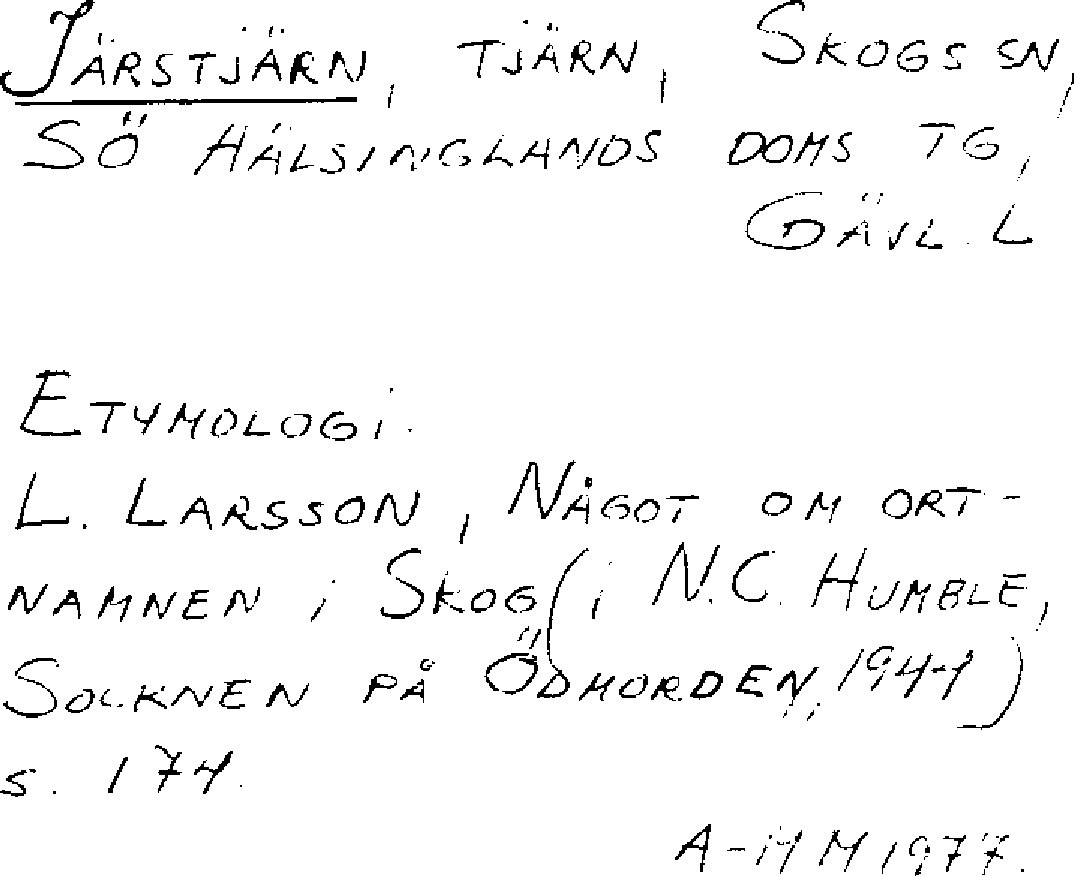 JÄRSTJÄRN, TJÄRN, SKOGS SN,
SÖ HÄLSINGLANDS DOMS TG,
GÄVL. L
ETYMOLOGI.
L. LARSSON, NÅGOT OM ORT-
NAMNEN i SKOG (i N.C. HUMBLE,
SOCKNEN PÅ ÖDMORDEN, 1941)
s. 174.
A-M M 1977.